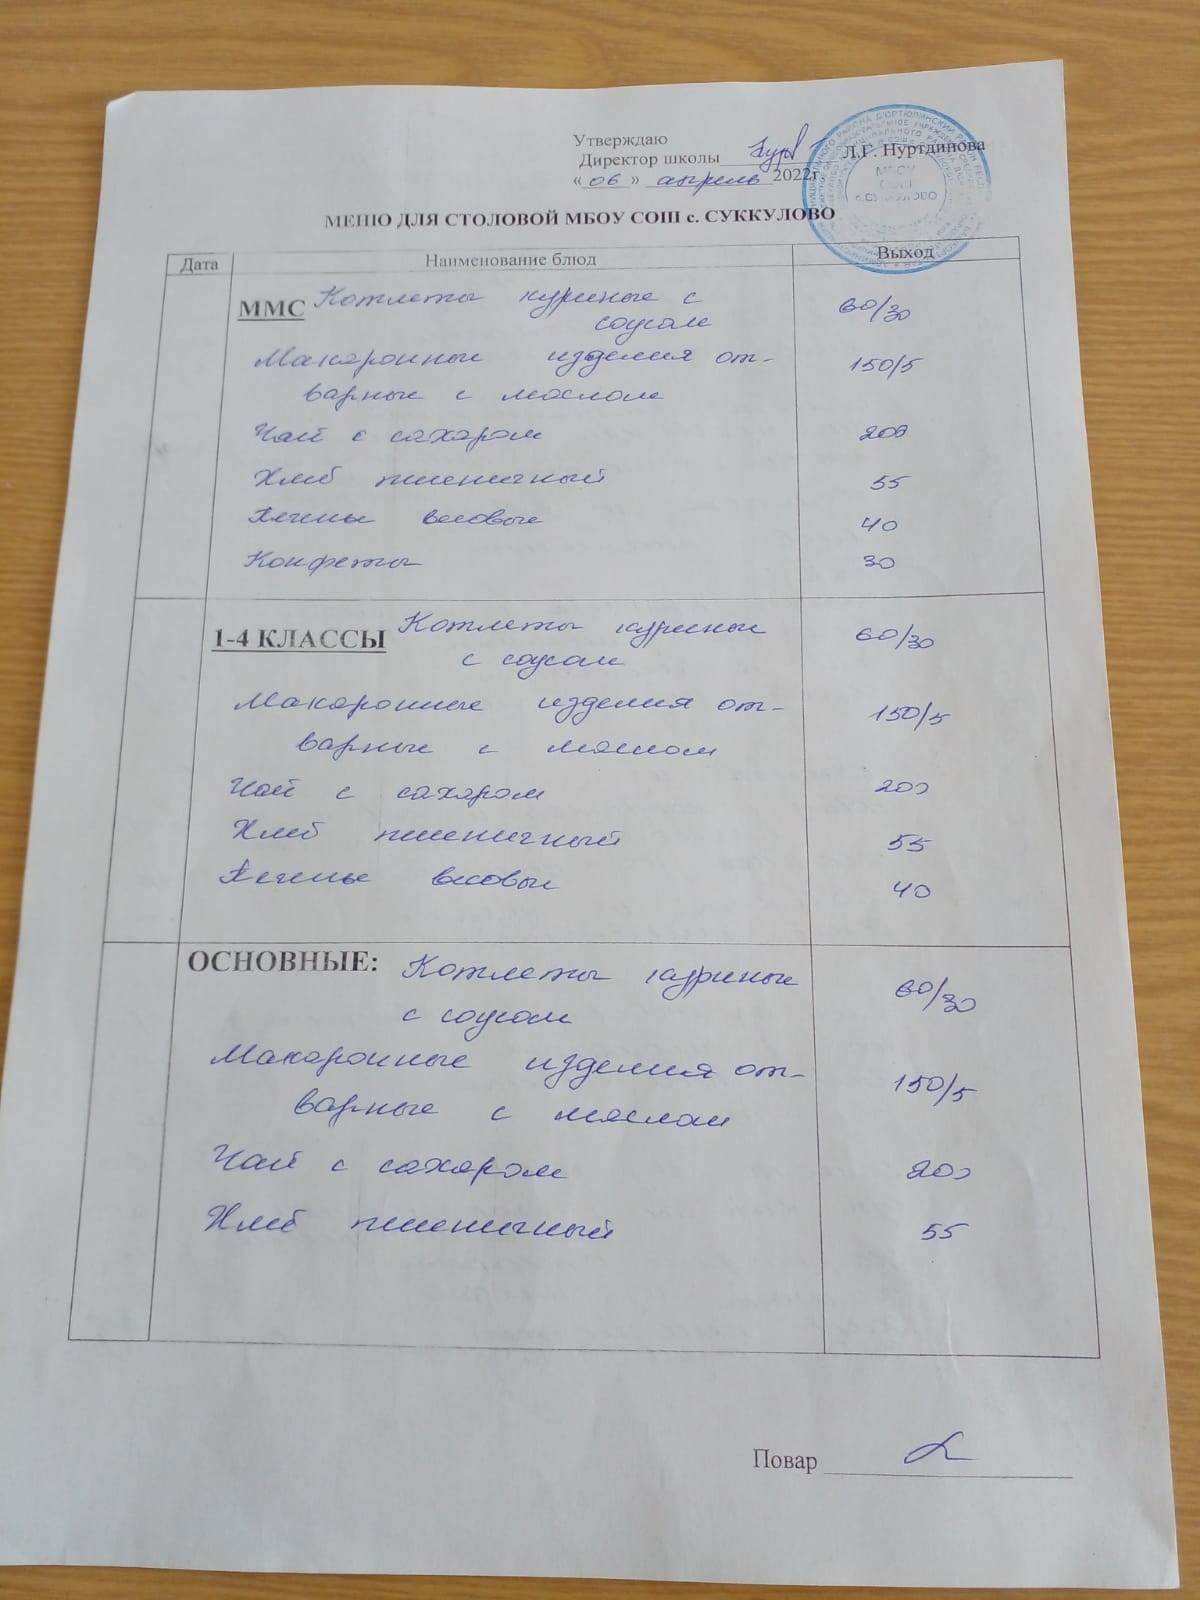 Утверждаю
Директор школы Л.Г. Нуртдинова
«06» апрель 2022г.
МБОУ
СОШ
с.СУККУЛОВО
МЕНЮ ДЛЯ СТОЛОВОЙ МБОУ СОШ с. СУККУЛОВО
Дата Наименование блюд Выход
ММС Котлеты куриные с 60/30
соусом
Макаронные изделия от- 150/5
варные с маслом
Чай с сахаром 200
Хлеб пшеничный 55
Печенье весовые 40
Конфеты 30
1-4 КЛАССЫ Котлеты куриные 60/30
с соусом
Макаронные изделия от- 150/5
варные с маслом
Чай с сахаром 200
Хлеб пшеничный 55
Печенье весовые 40
ОСНОВНЫЕ: Котлеты куриные 60/30
с соусом
Макаронные изделия от- 150/5
варные с маслом
Чай с сахаром 200
Хлеб пшеничный 55
Повар